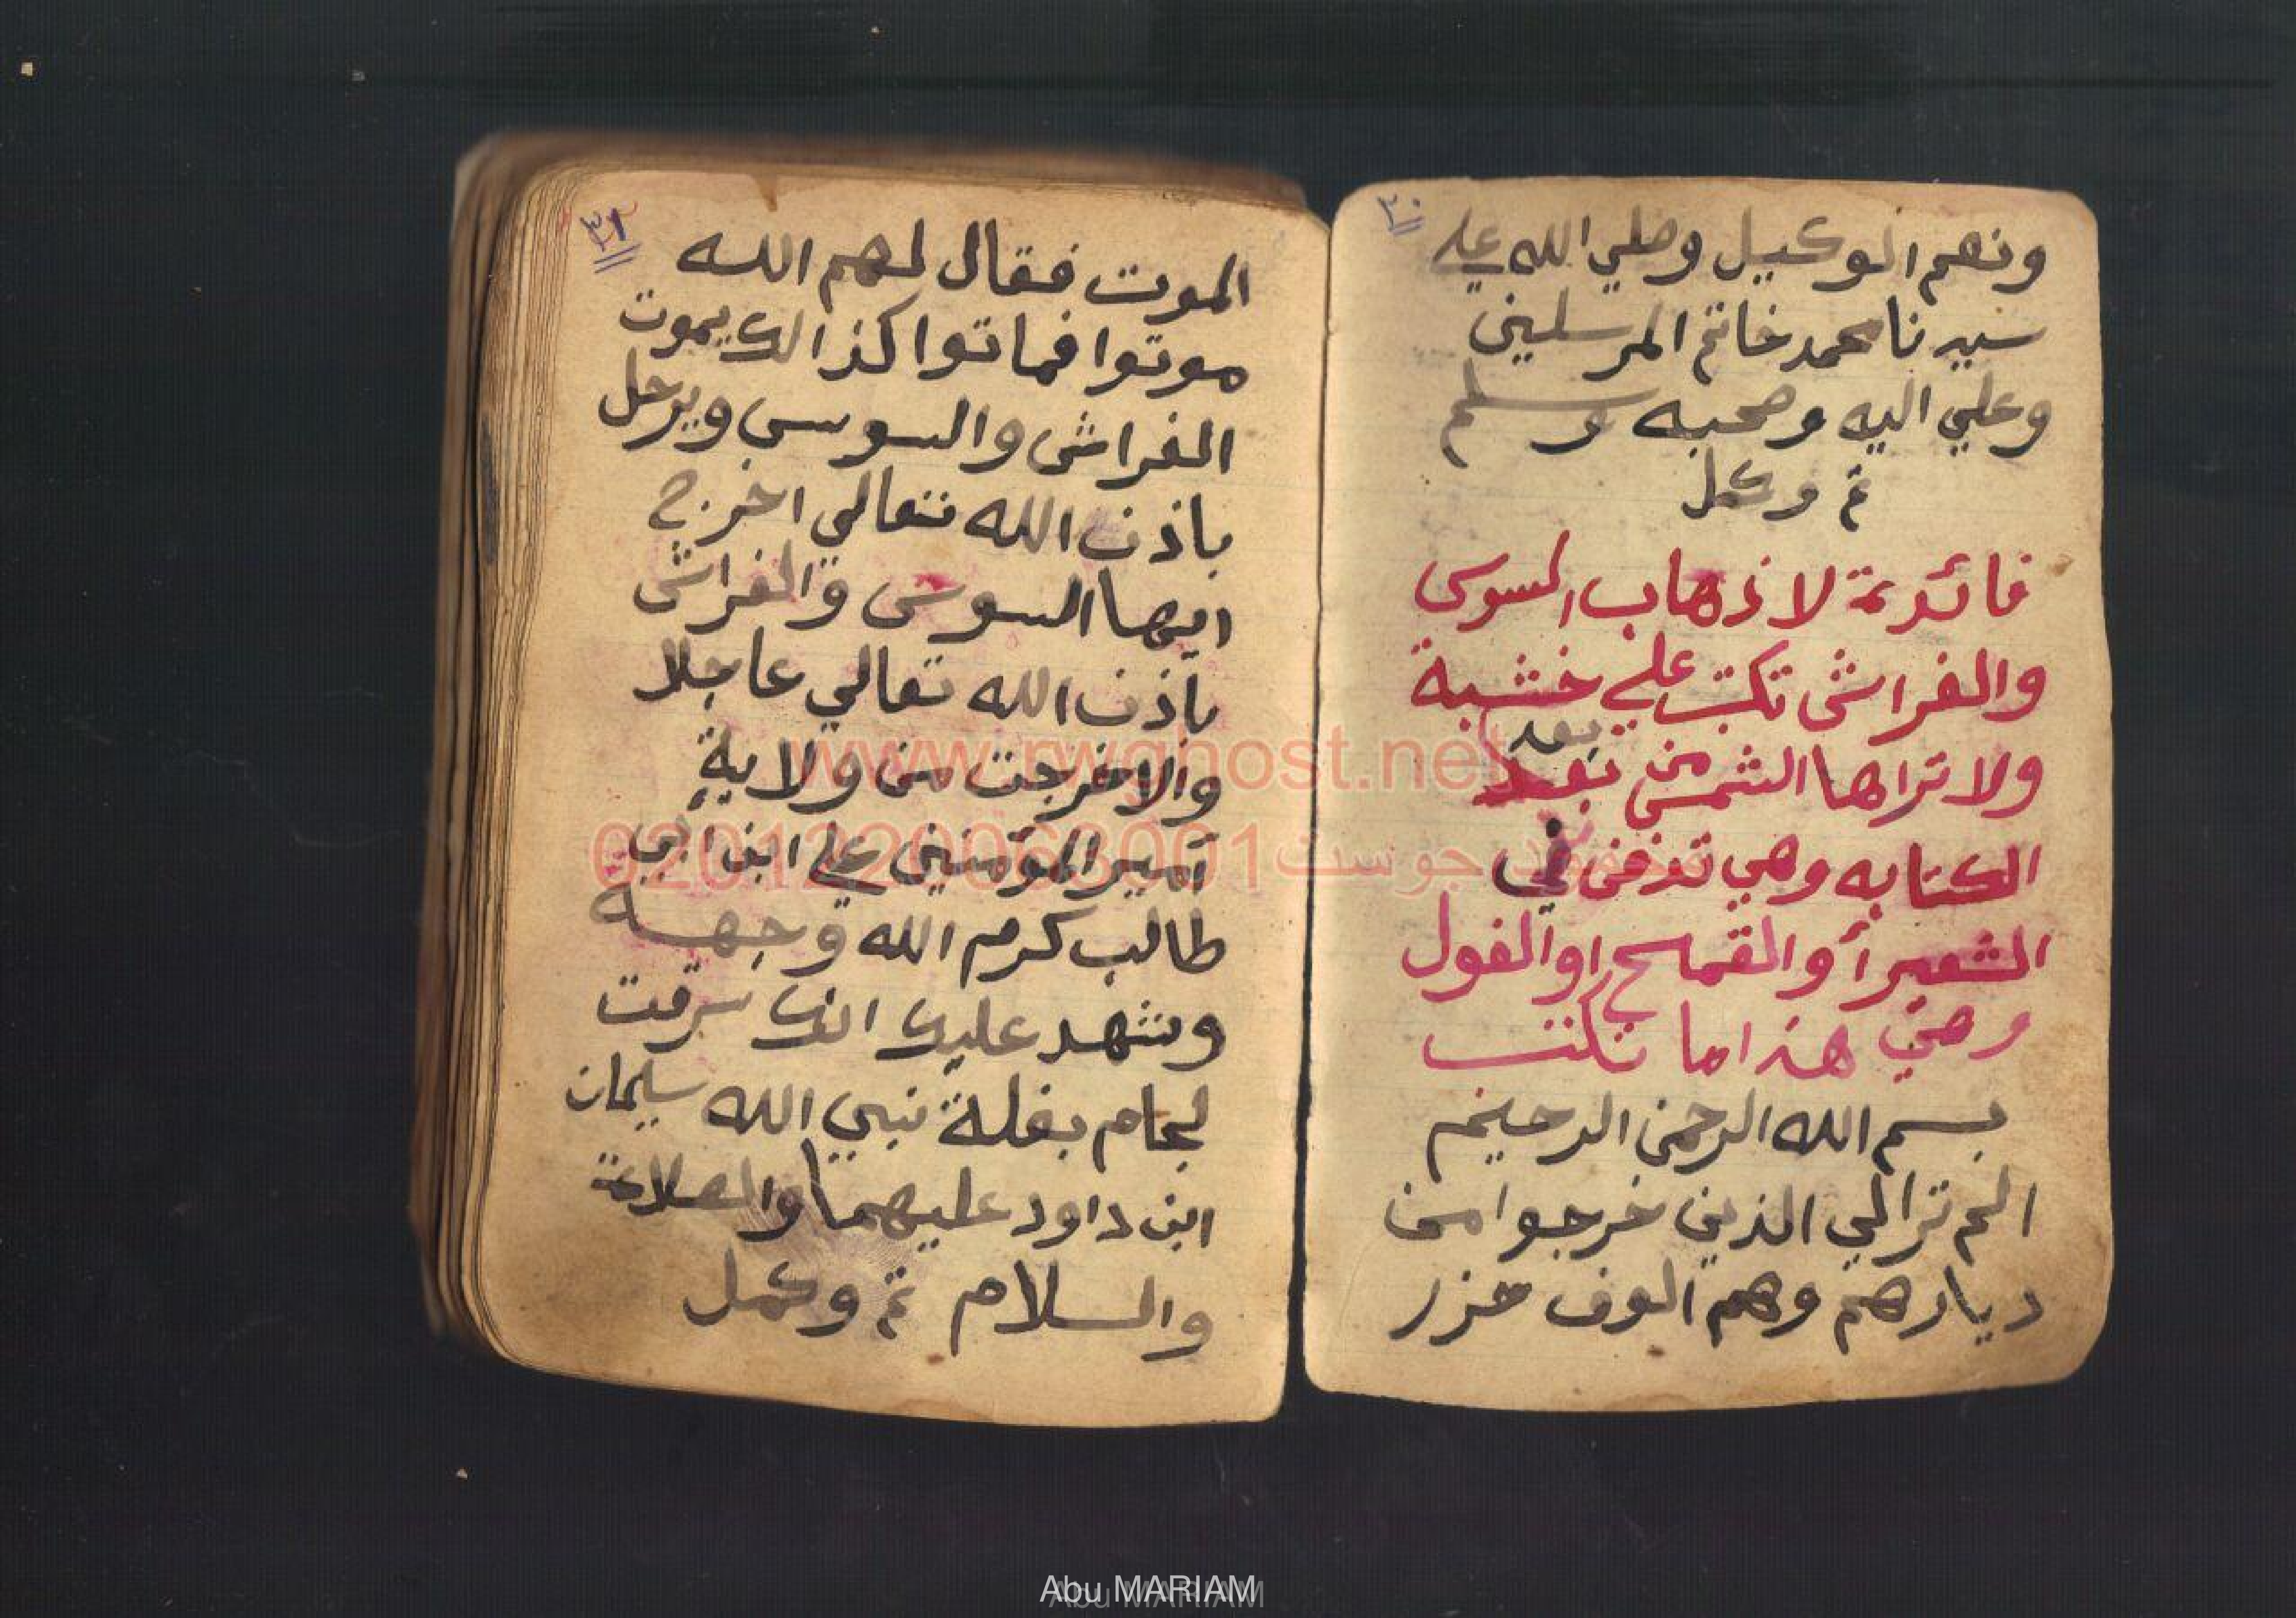 ٣٠
ونعم الوكيل وصلي الله علي
سيدنا محمد خاتم المرسلين
وعلي اليه وصحبه وسلم
تم وكمل
فائدة لاذهاب السوس
والفراش تكتب علي خشبة
ولا تراها الشمس من بعد
بعد
الكتابه وهي تدفن في
الشعير أو القمح او الفول
وهي هذا ما تكتب
بسم الله الرحمن الرحيم
الم تر الي الذين خرجوا من
ديارهم وهم الوف حزر
الموت فقال لهم الله
موتوا فماتوا كذالك يموت
الفراش والسوس ويرحل
باذن الله تعالي اخرج
ايها السوس والفراش
باذن الله تعالي عاجلا
والا خرجت من ولاية
امير المؤمنين علي ابن ابي
طالب كرم الله وجهه
ونشهد عليك انك سرقت
لجام بغلة نبي الله سليمان
ابن داود عليهما والصلاة
والسلام تم وكمل
www.rwghost.net
0201220063001 جوست
Abu MARIAM